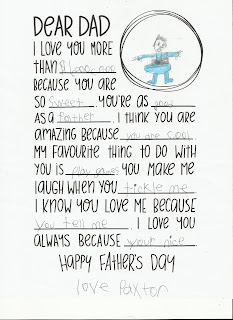 DEAR DAD
I LOVE YOU MORE
THAN
BECAUSE YOU ARE
SO sweet . YOU'RE AS good
AS A father . I THINK YOU ARE
AMAZING BECAUSE you are cool
MY FAVOURITE THING TO DO WITH
YOU IS play games YOU MAKE ME
LAUGH WHEN YOU tickle me
I KNOW YOU LOVE ME BECAUSE
you tell me . I LOVE YOU
ALWAYS BECAUSE your nice
HAPPY FATHER'S DAY
love Paxton